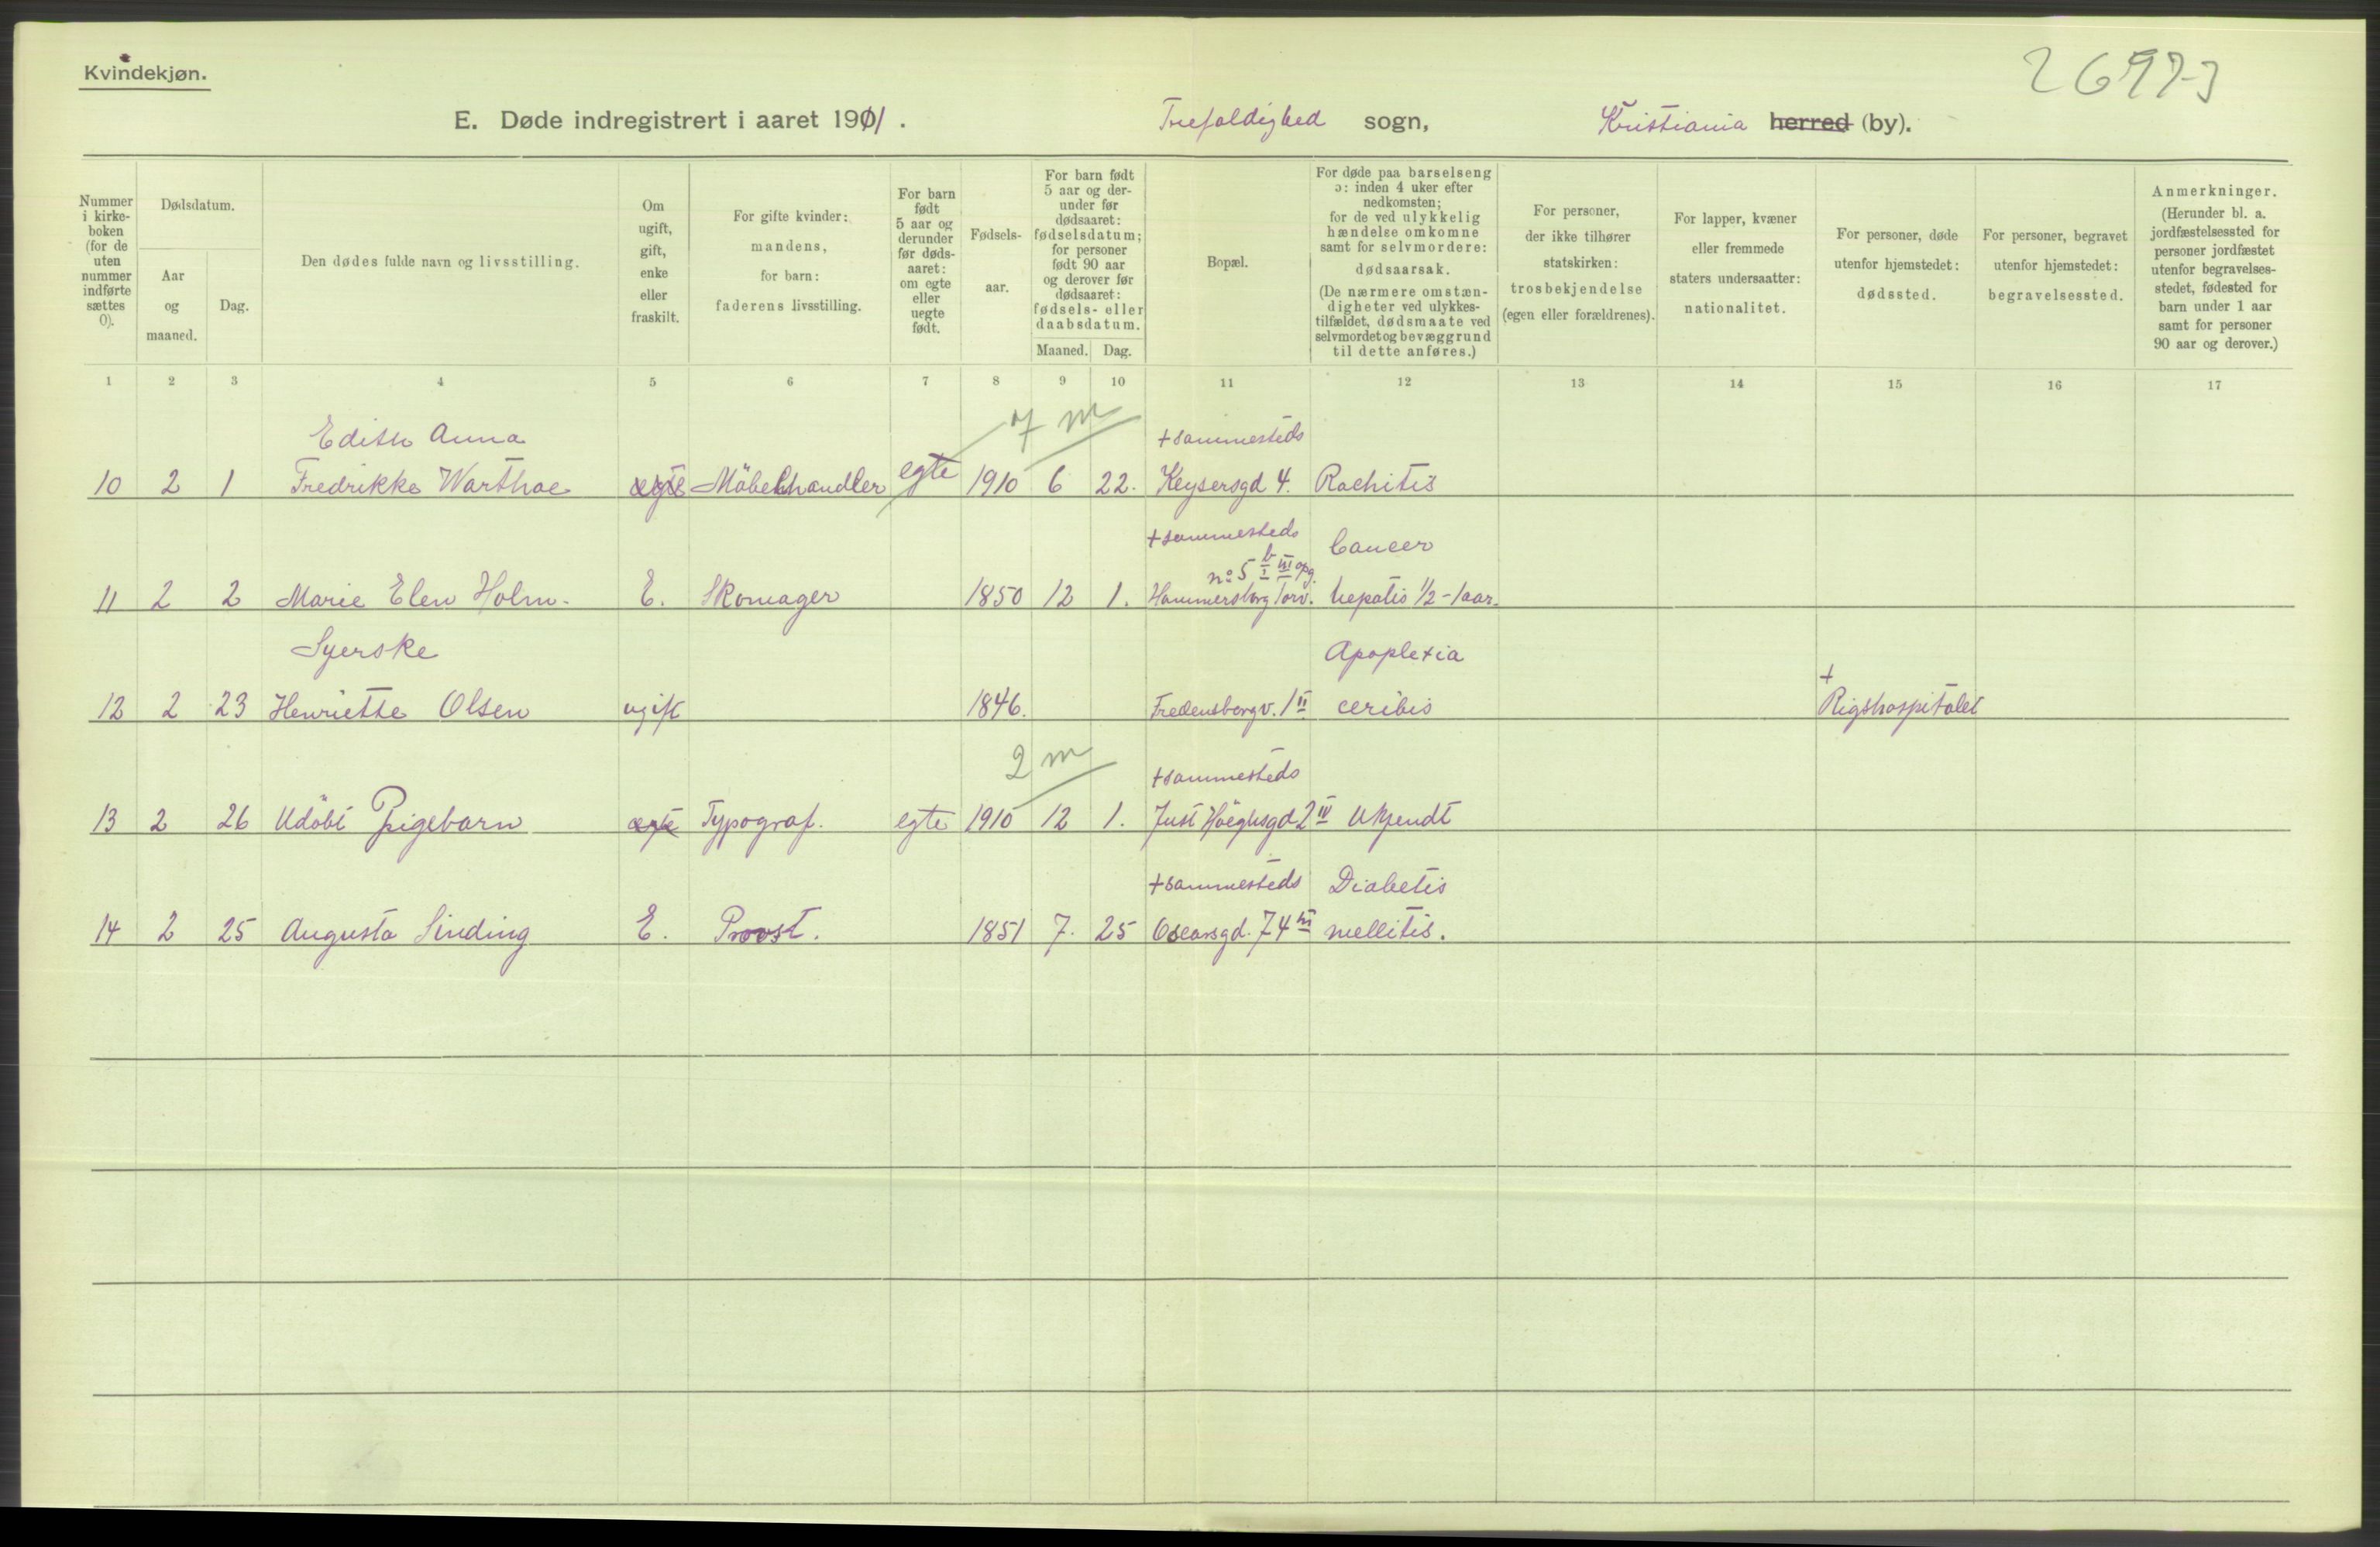 Kvindekjøn.
E. Døde indregistrert i aaret 1901. Trefoldighed sogn, Kristiania herred (by).
Nummer i kirkeboken (for de uten nummer indførte sættes 0).
Dødsdatum.
Aar og maaned.
Dag.
Den dødes fulde navn og livsstilling.
Om ugift, gift, enke eller fraskilt.
For gifte kvinder: mandens, for barn: faderens livsstilling.
For barn født 5 aar og derunder før dødsaaret: om egte eller uegte født.
Fødselsaar.
For barn født 5 aar og derunder før dødsaaret: fødselsdatum; for personer født 90 aar og derover før dødsaaret: fødsels- eller daabsdatum.
Maaned. Dag.
Bopæl.
For døde paa barselseng ɔ: inden 4 uker efter nedkomsten; for de ved ulykkelig hændelse omkomne samt for selvmordere: dødsaarsak. (De nærmere omstændigheter ved ulykkestilfældet, dødsmaate ved selvmordet og bevæggrund til dette anføres.)
For personer, der ikke tilhører statskirken: trosbekjendelse (egen eller forældrenes).
For lapper, kvæner eller fremmede staters undersaatter: nationalitet.
For personer, døde utenfor hjemstedet: dødssted.
For personer, begravet utenfor hjemstedet: begravelsessted.
Anmerkninger. (Herunder bl. a. jordfæstelsessted for personer jordfæstet utenfor begravelsesstedet, fødested for barn under 1 aar samt for personer 90 aar og derover.)
1 2 3 4 5 6 7 8 9 10 11 12 13 14 15 16 17
Edith Anna 7 m + sammesteds
10 2 1 Fredrikke Warthoe egte Möbelhandler egte 1910 6 22. Keysersgd 4. Rachitis
+ sammesteds Cancer
no 5 b I III opg.
11 2 2 Marie Elen Holm. E. Skomager 1850 12 1. Hammersborg Torv. hepatis 1/2 - 1 aar.
Syerske Apoplexia +
12 2 23 Henriette Olsen ugift 1846. Fredensborgv. 1 II ceribis Rigshospitalet
2 m + sammesteds
13 2 26 Udöbt Pigebarn egte Typograf. egte 1910 12 1. Just Höeghsgd 2 IV Ukjendt
+ sammesteds Diabetis
14 2 25 Augusta Sinding E. Provst. 1851 7. 25 Oscarsgd. 74 III mellitis.